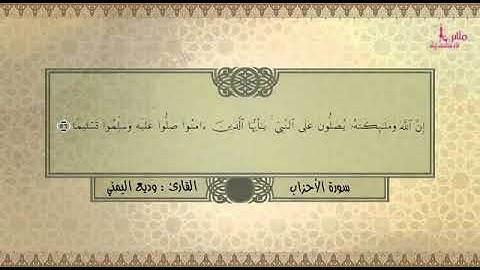 ملاس
إِنَّ ٱللَّهَ وَمَلَـٰٓئِكَتَهُۥ يُصَلُّونَ عَلَى ٱلنَّبِىِّ ۚ يَـٰٓأَيُّهَا ٱلَّذِينَ ءَامَنُوا۟ صَلُّوا۟ عَلَيْهِ وَسَلِّمُوا۟ تَسْلِيمًا ﴿٥٦﴾
سورة الأحزاب
القارئ : وديع اليمني